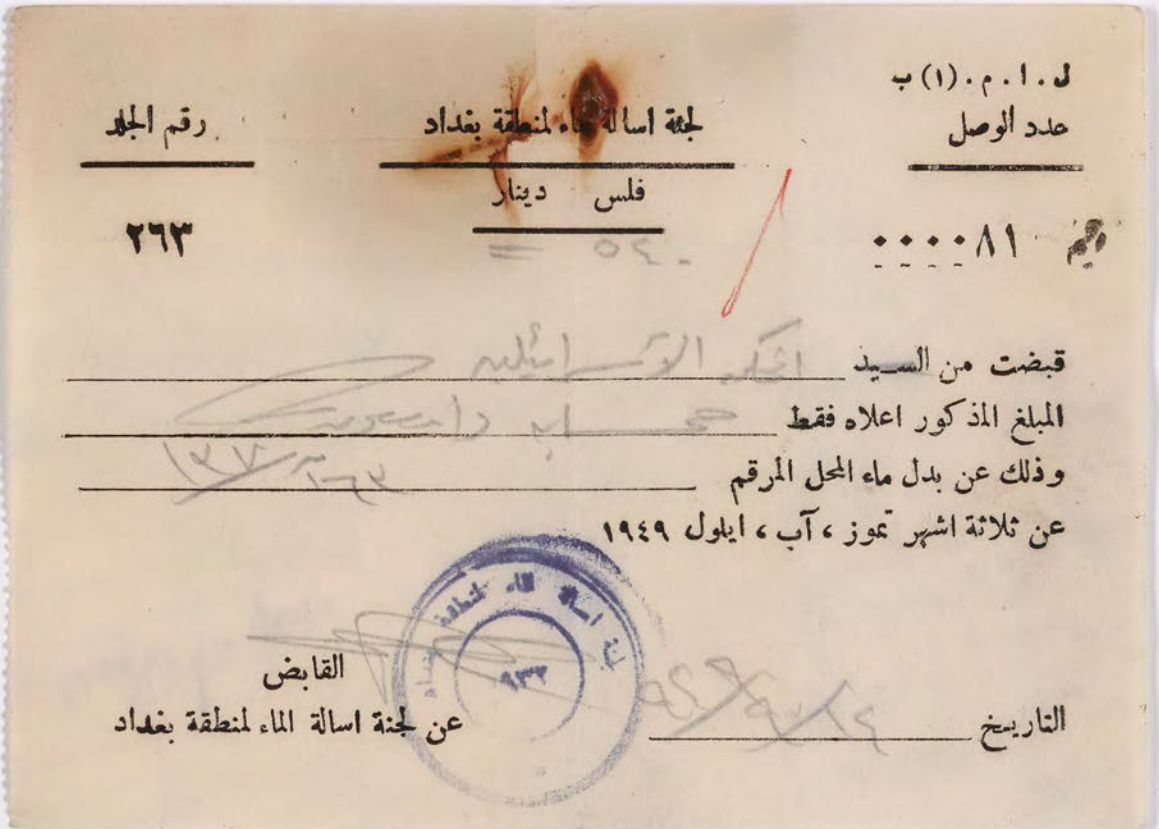 ل . ا . م . (١) ب
عدد الوصل
لجنة اسالة الماء لمنطقة بغداد
رقم الجلد
فلس دينار
٠٠٠٠٨١
٢٦٣
٥٤٠
قبضت من السيد
المبلغ المذكور اعلاه فقط
وذلك عن بدل ماء المحل المرقم
عن ثلاثة اشهر تموز ، آب ، ايلول ١٩٤٩
لجنة اسالة الماء لمنطقة بغداد
٩٣٣
القابض
عن لجنة اسالة الماء لمنطقة بغداد
التاريخ